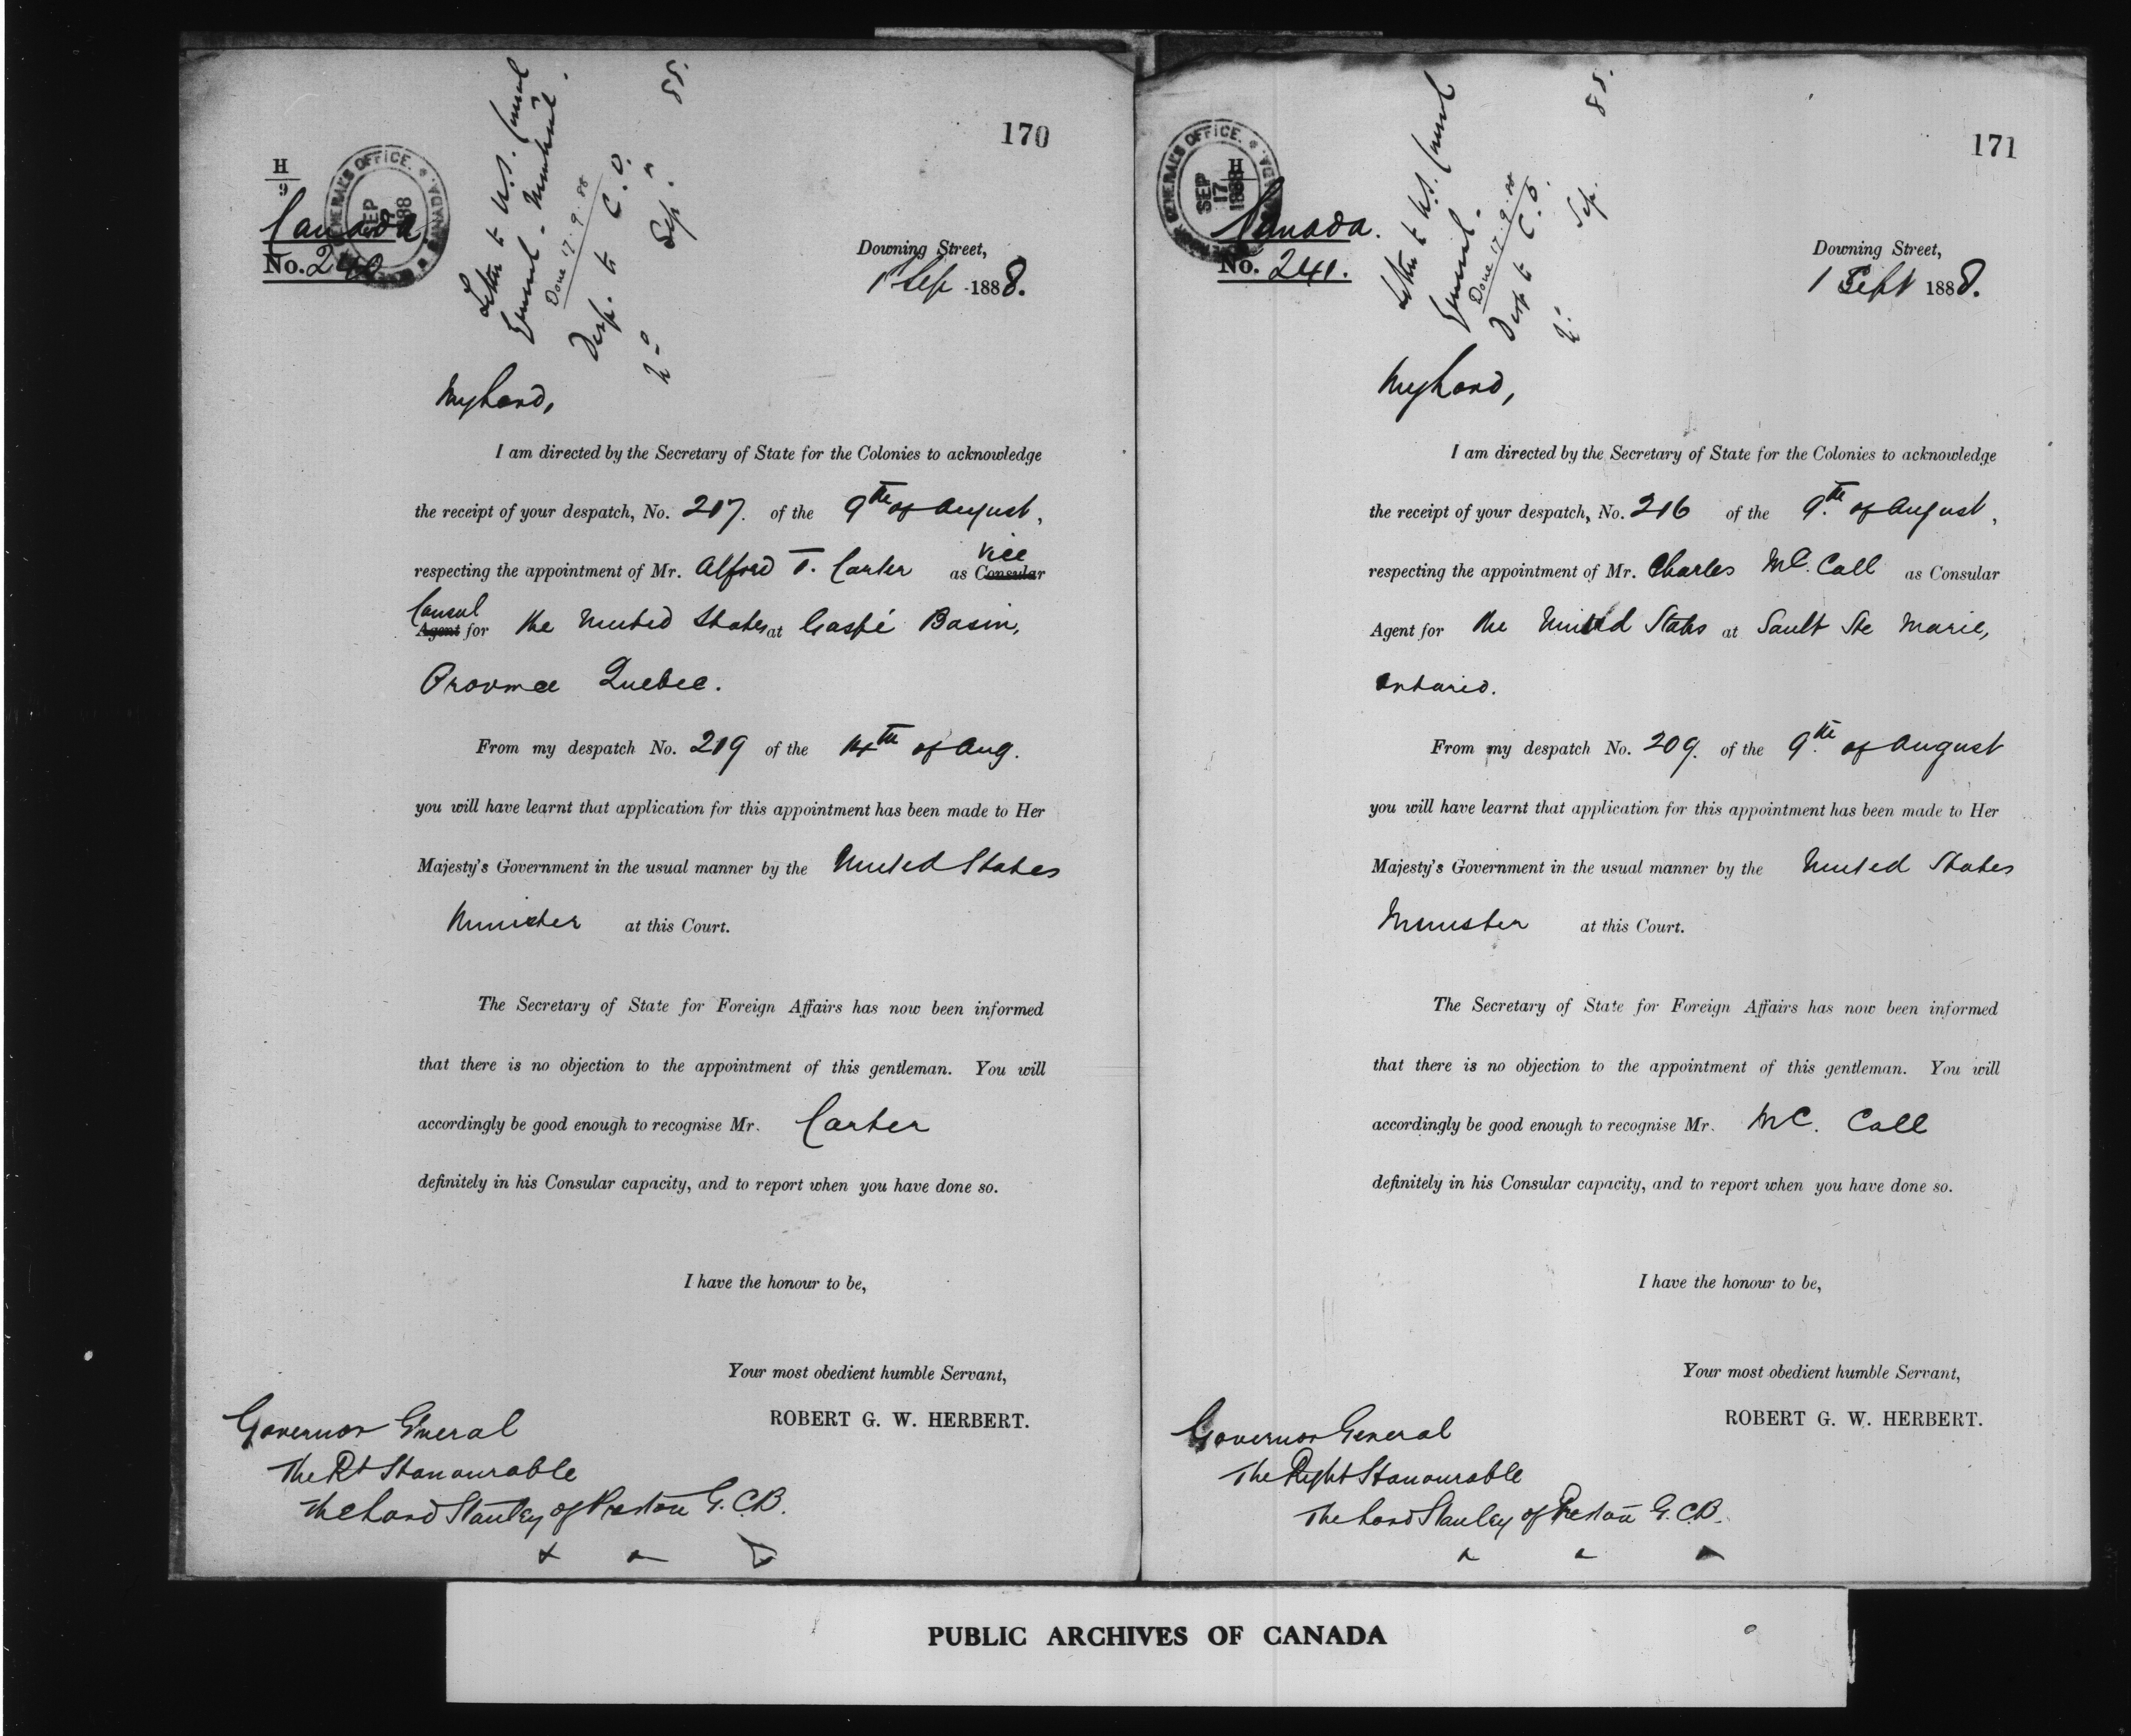 170
H
9
GENERAL'S OFFICE. CANADA
SEP
17
1888
Canada
No. 240
Letter to U.S. Consul
General - Montreal.
Done 17.9.88
Desp. to C.O.
Sep. 88.
Downing Street,
1 Sep 1888.
My Lord,
I am directed by the Secretary of State for the Colonies to acknowledge
the receipt of your despatch, No. 217. of the 9th of August,
respecting the appointment of Mr. Alfred T. Carter as Vice Consular
Consul Agent for the United States at Gaspé Basin,
Province Quebec.
From my despatch No. 219 of the 14th of Aug.
you will have learnt that application for this appointment has been made to Her
Majesty's Government in the usual manner by the United States
Minister at this Court.
The Secretary of State for Foreign Affairs has now been informed
that there is no objection to the appointment of this gentleman. You will
accordingly be good enough to recognise Mr. Carter
definitely in his Consular capacity, and to report when you have done so.
I have the honour to be,
Your most obedient humble Servant,
ROBERT G. W. HERBERT.
Governor General
The Rt Honourable
The Lord Stanley of Preston G.C.B.
171
H
GENERAL'S OFFICE.
SEP
17
1888
Canada.
No. 241.
Letter to U.S. Consul
General.
Done 17.9.88
Desp to C.O.
Sep. 88.
Downing Street,
1 Sept 1888.
My Lord,
I am directed by the Secretary of State for the Colonies to acknowledge
the receipt of your despatch, No. 216 of the 9th of August,
respecting the appointment of Mr. Charles Mc. Call as Consular
Agent for the United States at Sault Ste Marie,
Ontario.
From my despatch No. 209. of the 9th of August
you will have learnt that application for this appointment has been made to Her
Majesty's Government in the usual manner by the United States
Minister at this Court.
The Secretary of State for Foreign Affairs has now been informed
that there is no objection to the appointment of this gentleman. You will
accordingly be good enough to recognise Mr. Mc. Call
definitely in his Consular capacity, and to report when you have done so.
I have the honour to be,
Your most obedient humble Servant,
ROBERT G. W. HERBERT.
Governor General
The Right Honourable
The Lord Stanley of Preston G.C.B.
PUBLIC ARCHIVES OF CANADA